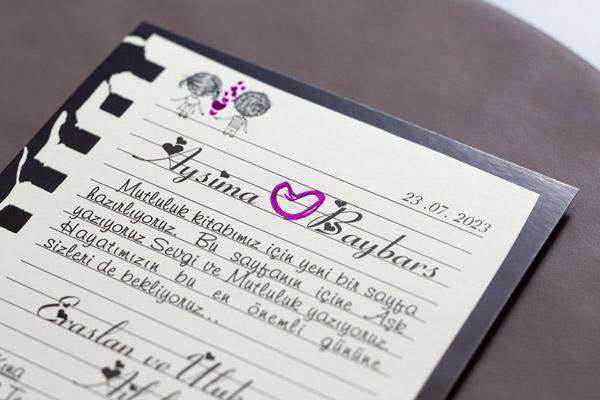 Aysima Baybars
23 .07. 2023
Mutluluk kitabımız için yeni bir sayfa
hazırlıyoruz. Bu sayfanın içine Aşk
yazıyoruz Sevgi ve Mutluluk yazıyoruz.
Hayatımızın bu en önemli gününe
sizleri de bekliyoruz...
Eraslan ve